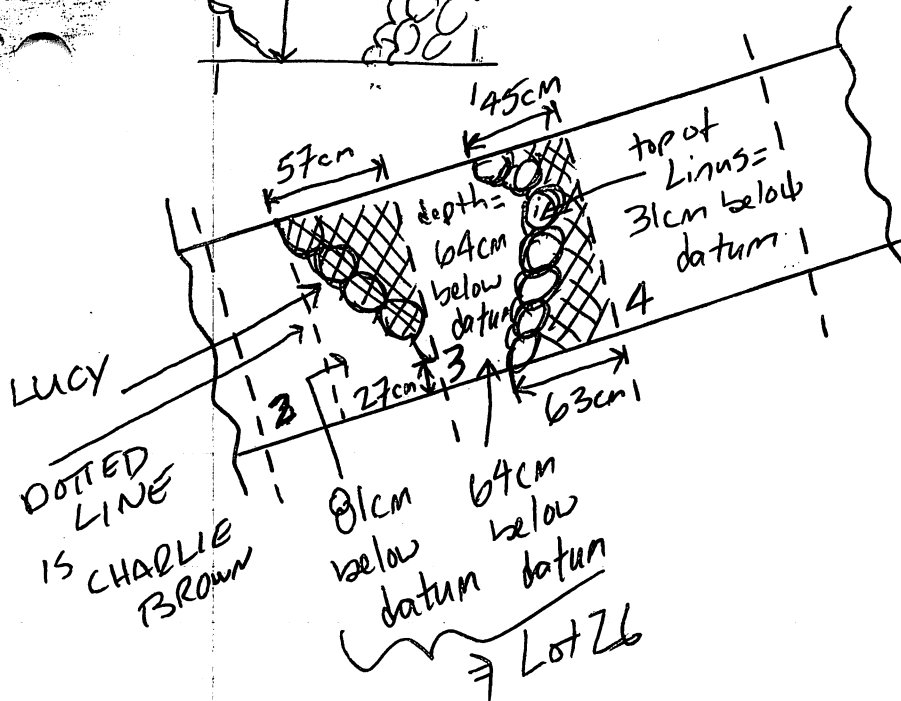 45cm
57cm
top of
Linus=
31cm below
datum
depth=
64cm
below
datum
4
3
27cm
63cm
LUCY
DOTTED
LINE
IS CHARLIE
BROWN
81cm
below
datum
64cm
below
datum
Lot 26